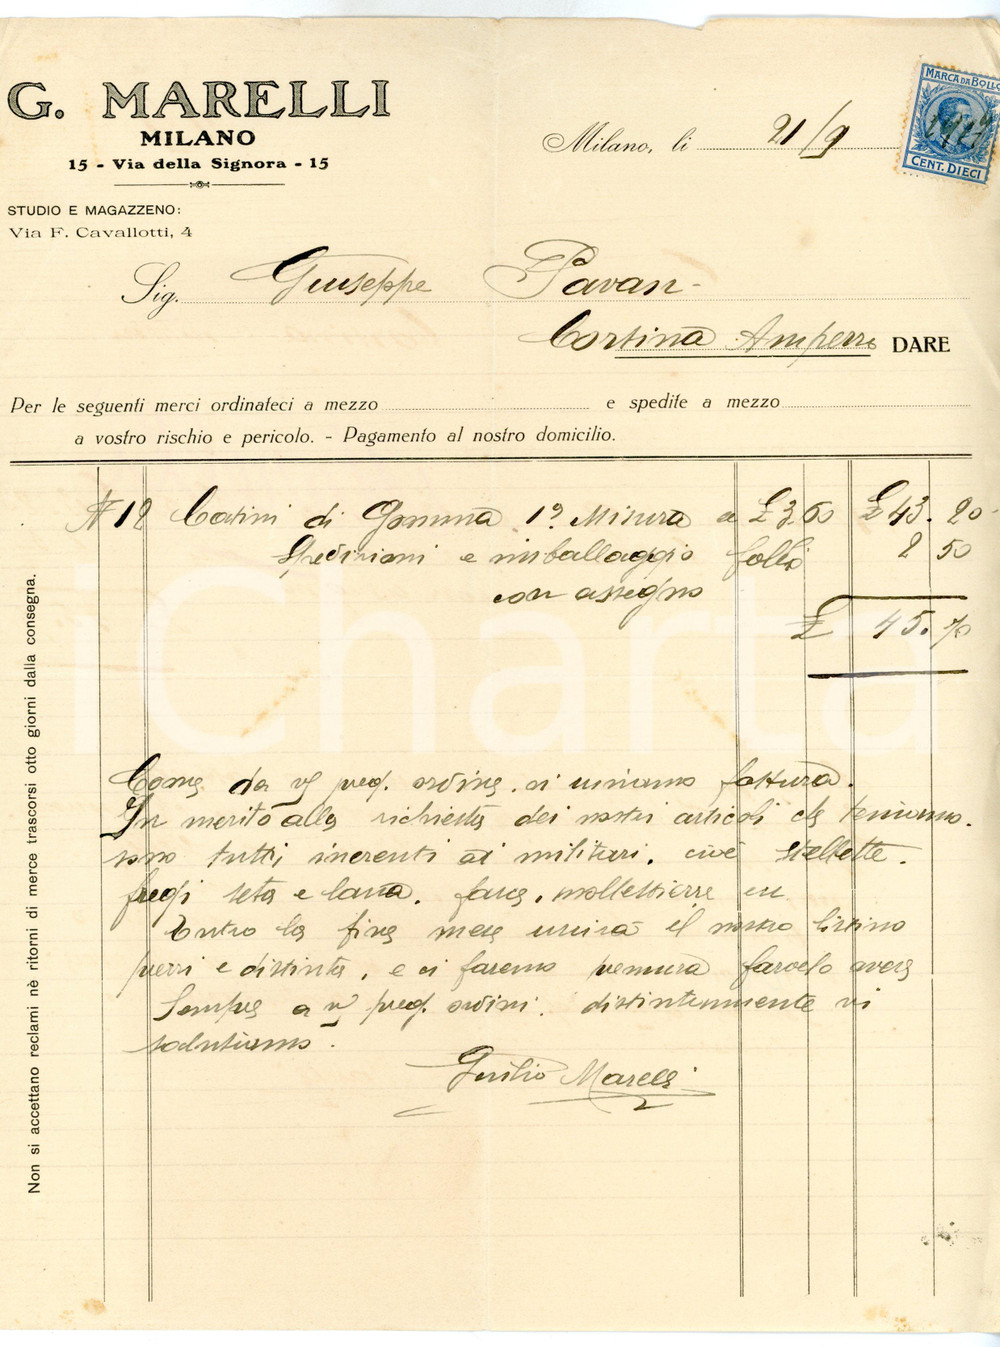 G. MARELLI
MILANO
15 - Via della Signora - 15
STUDIO E MAGAZZENO:
Via F. Cavallotti, 4
Milano, li 21/9
MARCA DA BOLLO
CENT. DIECI
Sig. Giuseppe Pavan -
Cortina Ampezzo DARE
Per le seguenti merci ordinateci a mezzo e spedite a mezzo
a vostro rischio e pericolo. - Pagamento al nostro domicilio.
N 12 Catini di Gomma 1º Misura a £ 3,60 £ 43.20
Spedizioni e imballaggio 2 50
con assegno
£ 45.70
Come da preg. ordine. vi uniamo fattura.
In merito alla richiesta dei nostri articoli che teniamo.
sono tutti inerenti ai militari. cioè stellette.
fregi seta e lana.
Entro la fine mese unirà il nostro listino
prezzi e distinta. e ci faremo premura farvelo avere
Sempre a preg. ordini. distintamente vi
salutiamo.
Giulio Marelli
Non si accettano reclami nè ritorni di merce trascorsi otto giorni dalla consegna.
iCharta